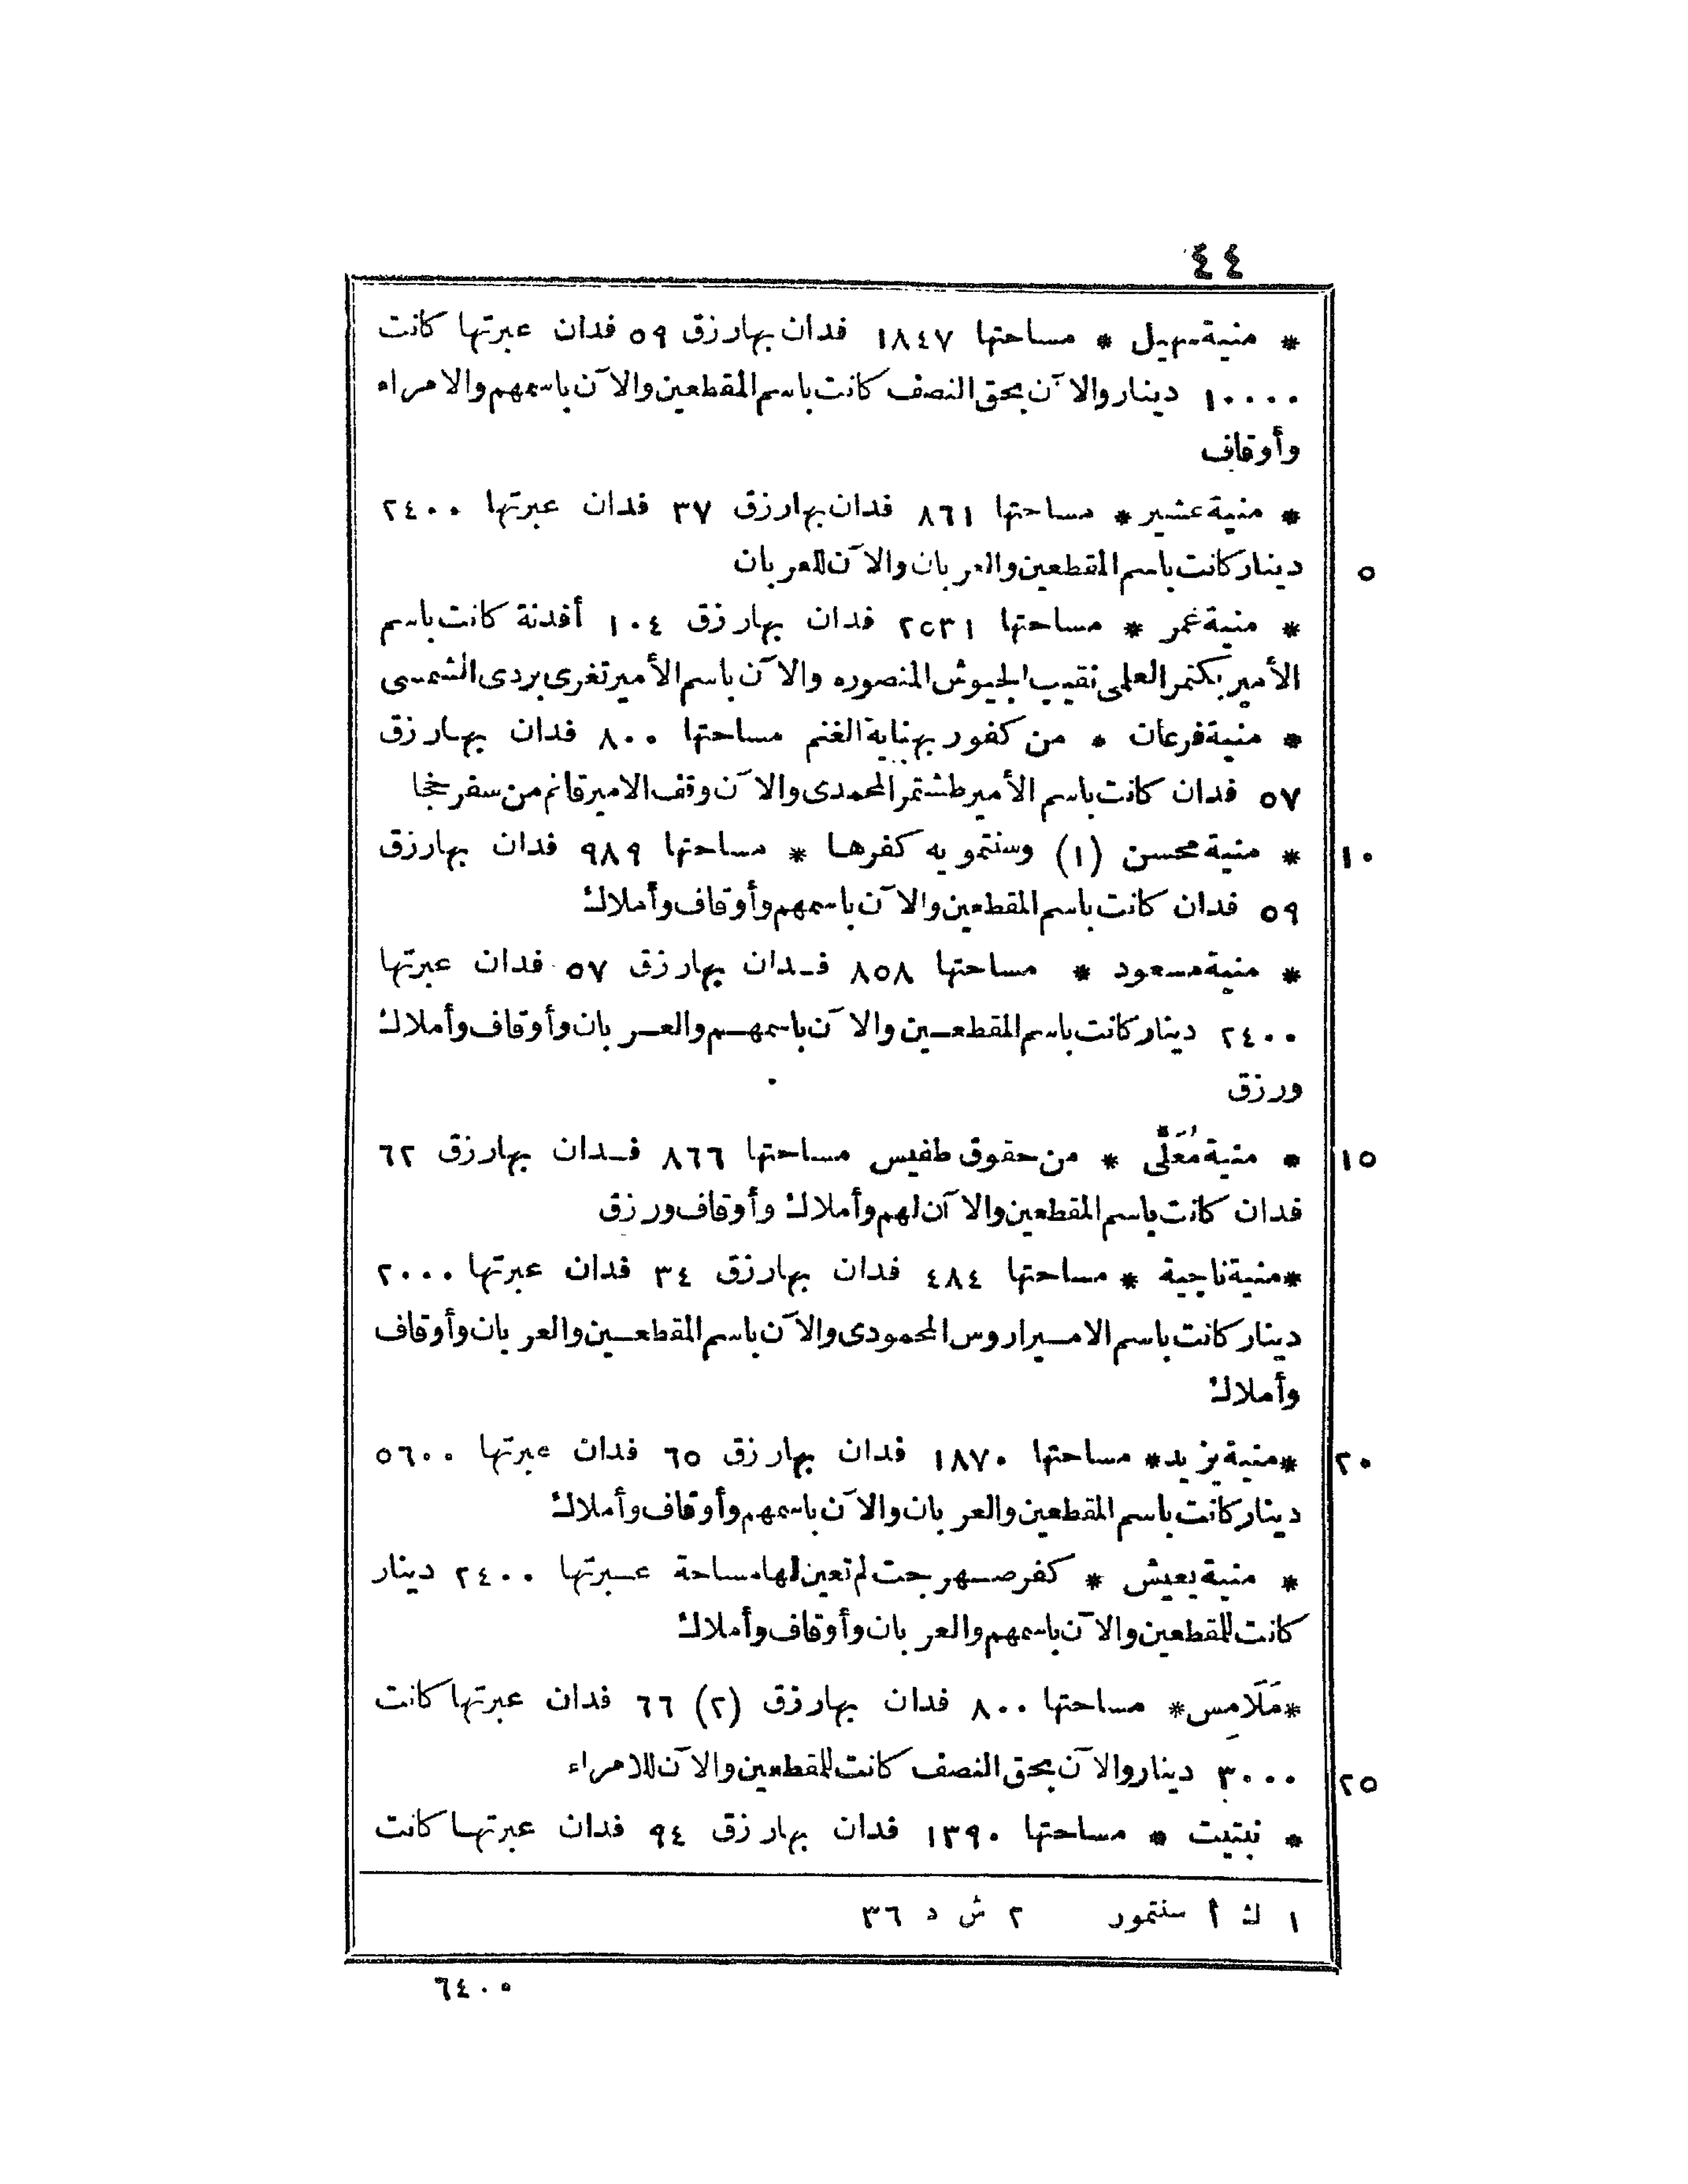 ٤٤
* منية سهيل * مساحتها ١٨٤٧ فدان بها رزق ٥٩ فدان عبرتها كانت
١٠٠٠٠ دينار والآن بحق النصف كانت باسم المقطعين والآن باسمهم والامراء
وأوقاف
* منية عشير * مساحتها ٨٦١ فدان بها رزق ٣٧ فدان عبرتها ٢٤٠٠
٥ دينار كانت باسم المقطعين والعربان والآن للعربان
* منية غمر * مساحتها ٢٥٣١ فدان بها رزق ١٠٤ أفدنة كانت باسم
الأمير بكتمر العلمى نقيب الجيوش المنصوره والآن باسم الأمير تغرى بردى الشمسى
* منية فرعان * من كفور بهناية الغنم مساحتها ٨٠٠ فدان بها رزق
٥٧ فدان كانت باسم الأمير طشتمر المحمدى والآن وقف الامير قانم من سفر خجا
١٠ * منية محسن (١) وسنتمويه كفرها * مساحتها ٩٨٩ فدان بها رزق
٥٩ فدان كانت باسم المقطعين والآن باسمهم وأوقاف وأملاك
* منية مسعود * مساحتها ٨٥٨ فدان بها رزق ٥٧ فدان عبرتها
٢٤٠٠ دينار كانت باسم المقطعين والآن باسمهم والعربان وأوقاف وأملاك
ورزق
١٥ * منية مُعَلَّى * من حقوق طفيس مساحتها ٨٦٦ فدان بها رزق ٦٢
فدان كانت باسم المقطعين والآن لهم وأملاك وأوقاف ورزق
* منية ناجية * مساحتها ٤٨٤ فدان بها رزق ٣٤ فدان عبرتها ٢٠٠٠
دينار كانت باسم الامير اروس المحمودى والآن باسم المقطعين والعربان وأوقاف
وأملاك
٢٠ * منية يزيد * مساحتها ١٨٧٠ فدان بها رزق ٦٥ فدان عبرتها ٥٦٠٠
دينار كانت باسم المقطعين والعربان والآن باسمهم وأوقاف وأملاك
* منية يعيش * كفر صهرجت لم تعين لها مساحة عبرتها ٢٤٠٠ دينار
كانت للمقطعين والآن باسمهم والعربان وأوقاف وأملاك
* مَلَامِس * مساحتها ٨٠٠ فدان بها رزق (٢) ٦٦ فدان عبرتها كانت
٢٥ ٣٠٠٠ دينار والآن بحق النصف كانت للمقطعين والآن للامراء
* نبتيت * مساحتها ١٣٩٠ فدان بها رزق ٩٤ فدان عبرتها كانت
١ ك أ سنتمور ٢ ش د ٣٦
٦٤٠٠